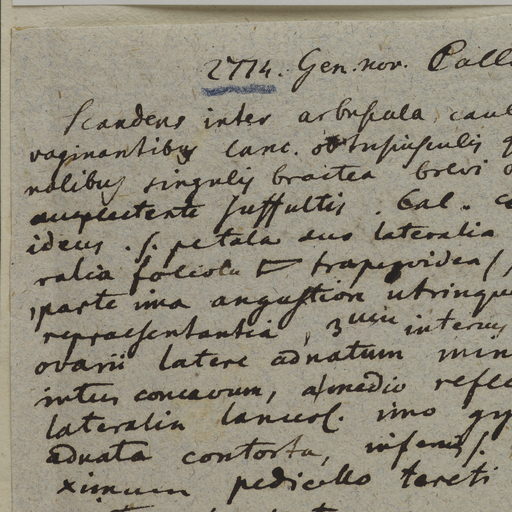 2774. Gen. nov. Pall
Scandens inter arbuscula caul
vaginantibus lanc. obtusiusculis
nalibus singulis bractea brevi
amplectente suffultis. Cal. c
ideus. s. petala duo lateralia
ralia foliola trapezoidea,
parte ima angustior utrinque
repraesentantia, 3um interius
ovarii latere adnatum min
intus concavum, a medio refle
lateralia lanceol. imo gy
adnata contorta, inferius s.
ximum pedicello tereti